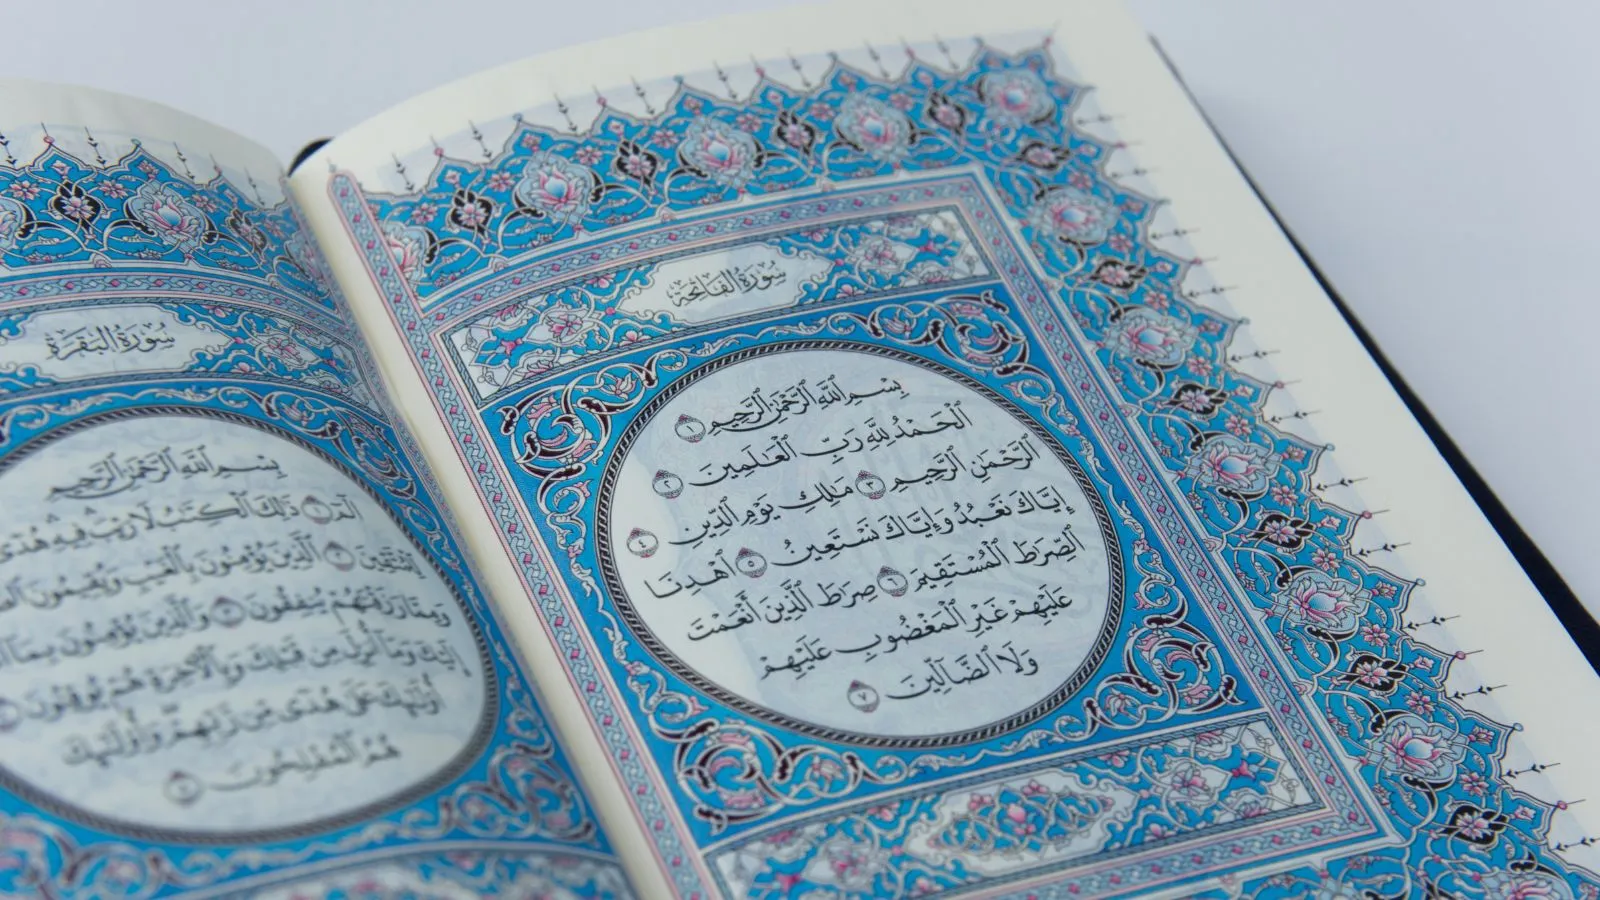 سُورَةُ الفَاتِحَة
بِسْمِ ٱللَّهِ ٱلرَّحْمَٰنِ ٱلرَّحِيمِ ١
ٱلْحَمْدُ لِلَّهِ رَبِّ ٱلْعَٰلَمِينَ ٢
ٱلرَّحْمَٰنِ ٱلرَّحِيمِ ٣ مَٰلِكِ يَوْمِ ٱلدِّينِ ٤
إِيَّاكَ نَعْبُدُ وَإِيَّاكَ نَسْتَعِينُ ٥ ٱهْدِنَا
ٱلصِّرَٰطَ ٱلْمُسْتَقِيمَ ٦ صِرَٰطَ ٱلَّذِينَ أَنْعَمْتَ
عَلَيْهِمْ غَيْرِ ٱلْمَغْضُوبِ عَلَيْهِمْ
وَلَا ٱلضَّآلِّينَ ٧
سُورَةُ البَقَرَةِ
بِسْمِ ٱللَّهِ ٱلرَّحْمَٰنِ ٱلرَّحِيمِ
الٓمٓ ١ ذَٰلِكَ ٱلْكِتَٰبُ لَا رَيْبَ فِيهِ هُدًى
لِّلْمُتَّقِينَ ٢ ٱلَّذِينَ يُؤْمِنُونَ بِٱلْغَيْبِ وَيُقِيمُونَ
وَمِمَّا رَزَقْنَٰهُمْ يُنفِقُونَ ٣ وَٱلَّذِينَ يُؤْمِنُونَ بِمَآ
إِلَيْكَ وَمَآ أُنزِلَ مِن قَبْلِكَ وَبِٱلْأٓخِرَةِ هُمْ يُوقِنُونَ
أُو۟لَٰٓئِكَ عَلَىٰ هُدًى مِّن رَّبِّهِمْ وَأُو۟لَٰٓئِكَ
هُمُ ٱلْمُفْلِحُونَ ٥